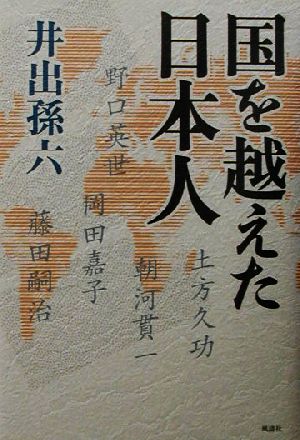 国を越えた
日本人
井出孫六
野口英世
岡田嘉子
藤田嗣治
土方久功
朝河貫一
風濤社